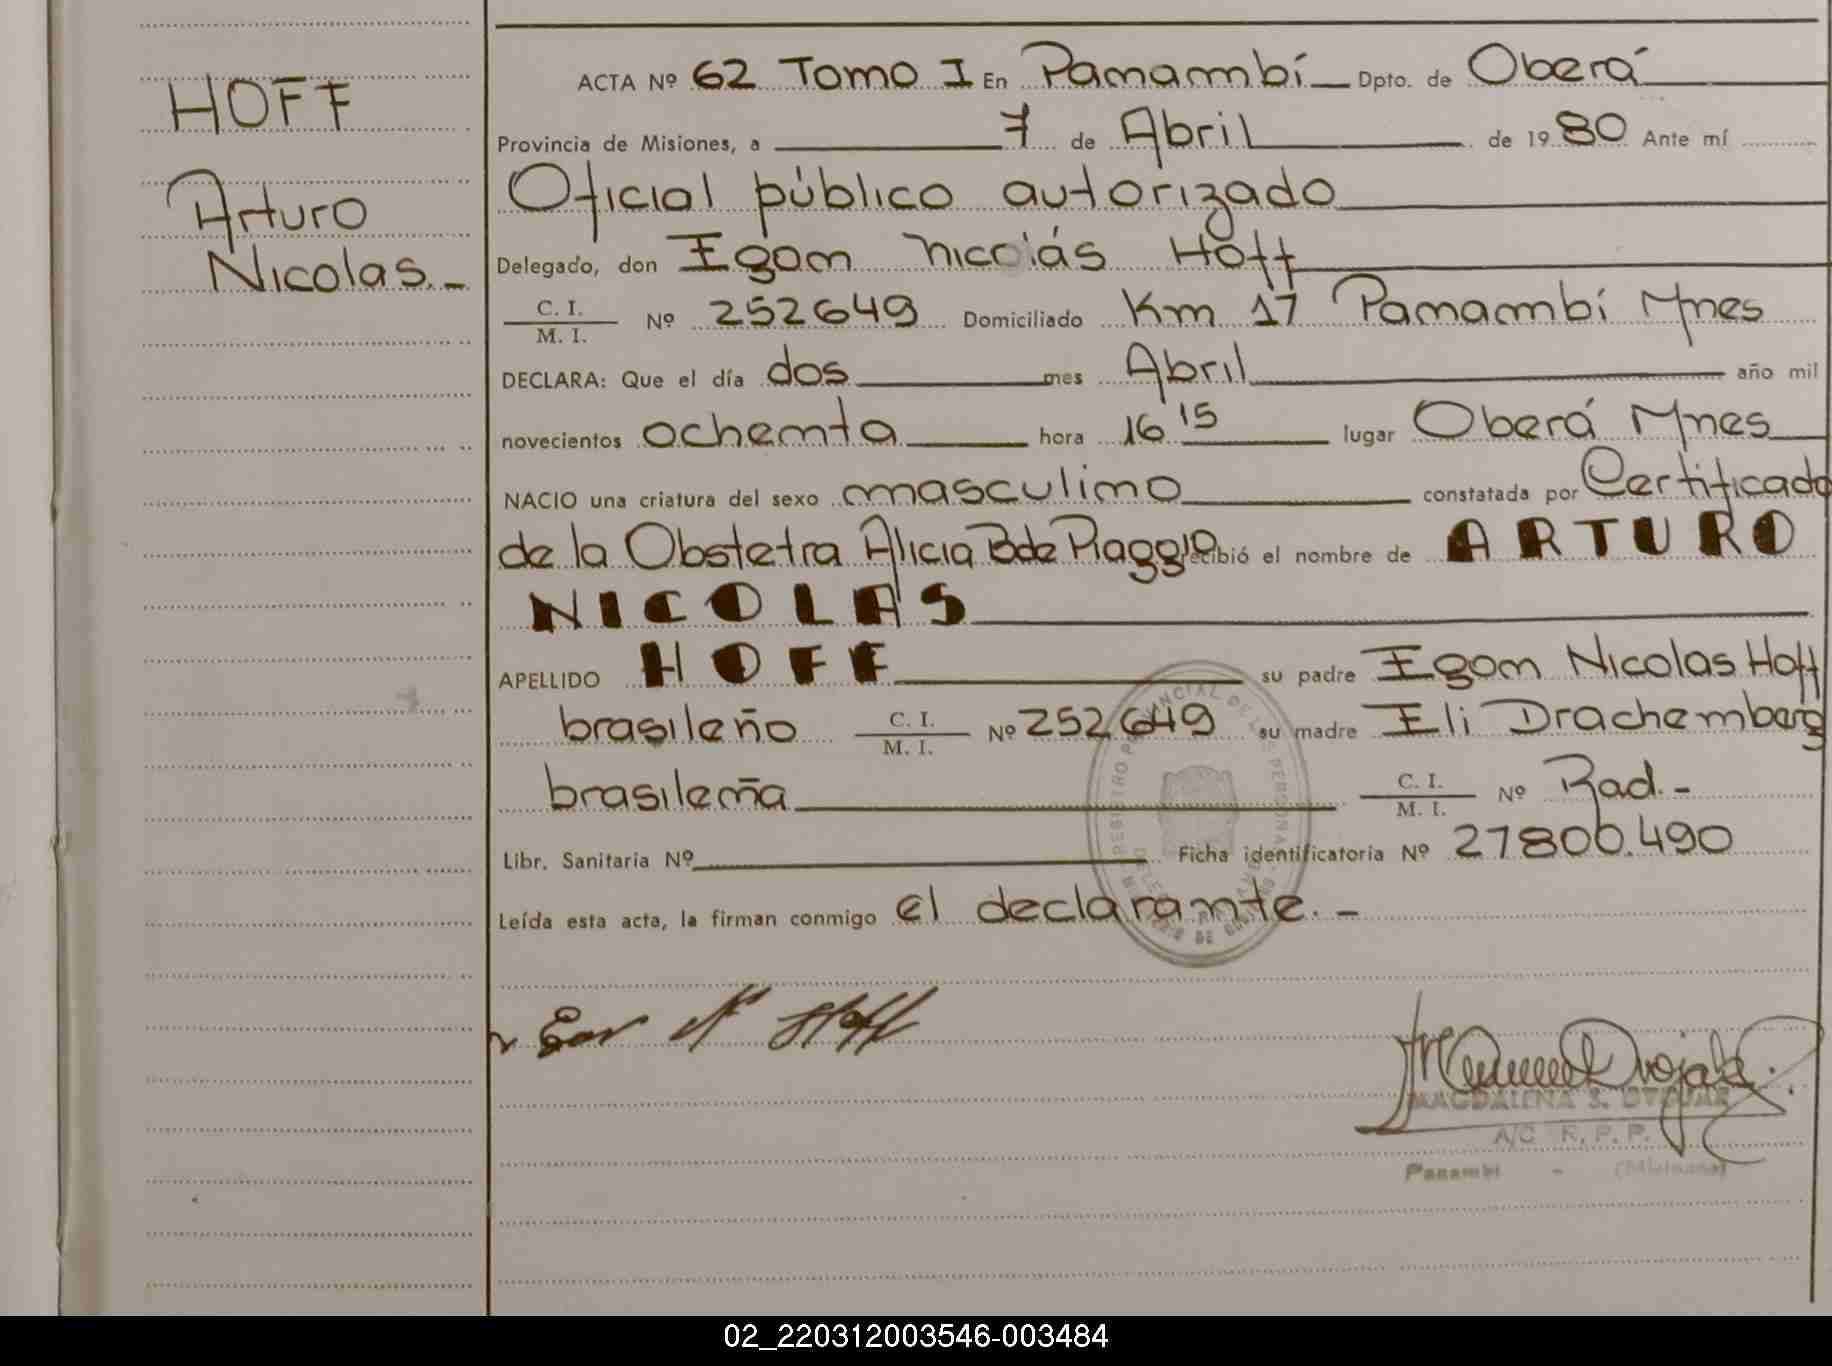 HOFF
Arturo
Nicolas.-
ACTA Nº 62 Tomo I En Panambí Dpto. de Oberá
Provincia de Misiones, a 7 de Abril de 1980 Ante mí
Oficial público autorizado
Delegado, don Egon Nicolás Hoff
C. I.
M. I.
Nº 252649 Domiciliado Km 17 Panambí Mnes
DECLARA: Que el día dos mes Abril año mil
novecientos ochenta hora 16 15 lugar Oberá Mnes
NACIO una criatura del sexo masculino constatada por Certificado
de la Obstetra Alicia B de Piaggio recibió el nombre de ARTURO
NICOLAS
APELLIDO HOFF su padre Egon Nicolas Hoff
brasileño C. I. Nº 252649 su madre Eli Drachenberg
M. I.
brasileña C. I. Nº Rad.-
M. I.
Libr. Sanitaria Nº Ficha identificatoria Nº 27800.490
Leída esta acta, la firman conmigo el declarante.-
REGISTRO PROVINCIAL DE LAS PERSONAS
N Hoff
MAGDALENA S. OVOJAR
A/C R. P. P.
Panambí - (Misiones)
02_220312003546-003484